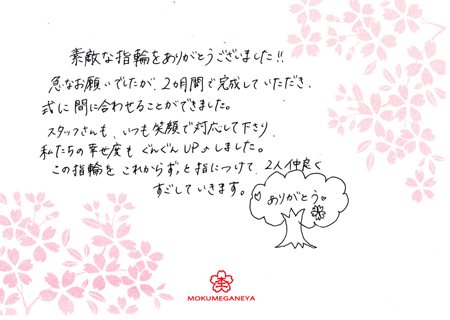 素敵な指輪をありがとうございました!!
急なお願いでしたが、2カ月間で完成していただき、
式に間に合わせることができました。
スタッフさんも、いつも笑顔で対応して下さり、
私たちの幸せ度もぐんぐんUP♪しました。
この指輪を これからずっと指につけて、2人仲良く
すごしていきます。
ありがとう。
MOKUMEGANEYA